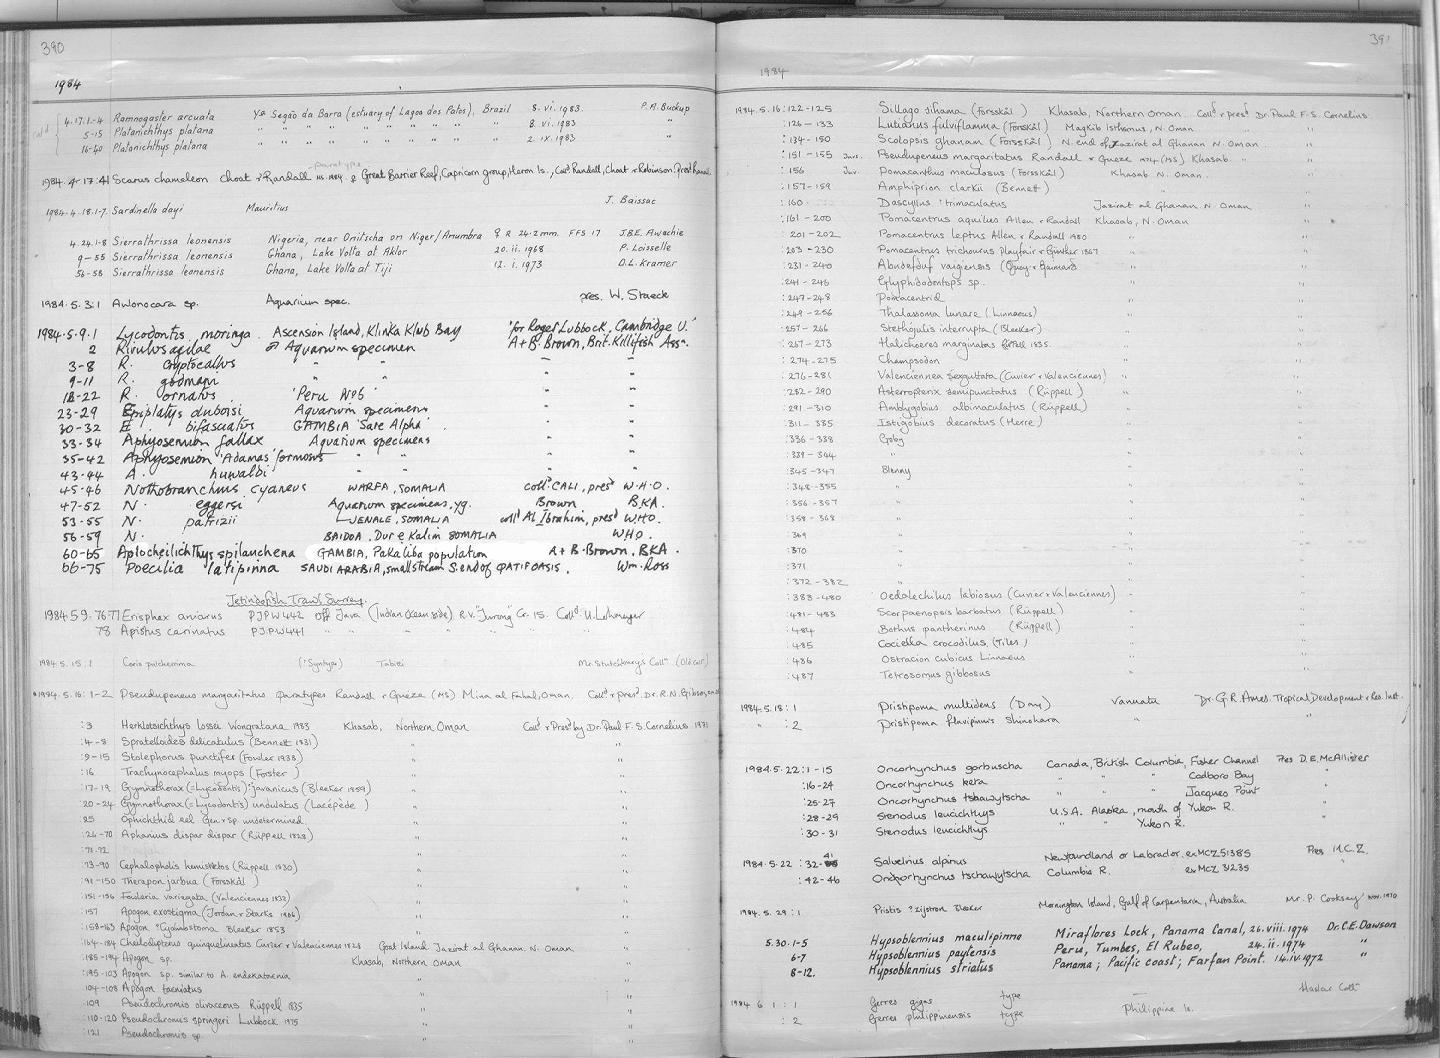 390
1984
4.17.1-4 Ramnogaster arcuata Segão da Barra (estuary of Lagoa dos Patos), Brazil 8.vi.1983. P.A. Buckup
5-15 Platanichthys platana " " " " " " " 8.vi.1983 "
16-40 Platanichthys platana " " " " " " " 2.ix.1983 "
paratype
1984.4.17:41 Scarus chameleon Choat & Randall MS. 1984. Great Barrier Reef, Capricorn group, Heron Is., Coll. Randall, Choat & Robinson. Pres. Randall
1984.4.18.1-7. Sardinella dayi Mauritius J. Baissac
4.24.1-8 Sierrathrissa leonensis Nigeria, near Onitscha on Niger/Anumbra ♀ R 24.2mm. FFS 17 J.B.E. Awachie
9-55 Sierrathrissa leonensis Ghana, Lake Volta at Aklor 20.ii.1968 P. Loisselle
56-58 Sierrathrissa leonensis Ghana, Lake Volta at Tiji 12.i.1973 D.L. Kramer
1984.5.3:1 Aulonocara sp. Aquarium spec. pres. W. Staeck
1984.5.9.1 Lycodontis moringa Ascension Island, Klinka Klub Bay 'for Roger Lubbock, Cambridge U.'
2 Rivulus agilae ♂ Aquarium specimen A+B. Brown, Brit. Killifish Assn.
3-8 R. cryptocallus " " " "
9-11 R. godmani " " " "
12-22 R. ornatus 'Peru No6 " "
23-29 Epiplatys duboisi Aquarium specimens " "
30-32 E. bifasciatus GAMBIA 'Sare Alpha' " "
33-34 Aphyosemion fallax Aquarium specimens " "
35-42 Aphyosemion 'Adamas' formosus " " " "
43-44 A. huwaldi " " " "
45-46 Nothobranchius cyaneus WARFA, SOMALIA colld CALI, presd W.H.O.
47-52 N. eggersi Aquarium specimens, yg. Brown B.K.A.
53-55 N. patrizii JENALE, SOMALIA colld Al Ibrahim, presd W.H.O.
56-59 N. BAIDOA, Dur e Kalin SOMALIA WHO.
60-65 Aplocheilichthys spilauchena GAMBIA, Pakaliba population A+B. Brown, BKA.
66-75 Poecilia latipinna SAUDI ARABIA, small stream S. end of QATIF OASIS. Wm. Ross
Jetindofish Trawl Survey.
1984.5.9.76-77 Erisphex aniarus PJPW442 off Java (Indian Ocean side) R.V. "Jurong" Cr. 15. Colld U. Lohmeyer
78 Apistus carinatus PJPW441 " " " " "
1984.5.15:1 Coris pulcherrima (?Syntype) Tahiti Mr. Stutchbury's Colln (Old coll)
1984.5.16:1-2 Pseudupeneus margaritatus paratypes Randall & Guéze (MS) Mina al Fahal, Oman. Colld & presd. Dr. R.N. Gibson,
:3 Herklotsichthys lossei Wongratana 1983 Khasab, Northern Oman Colld & Presd by Dr. Paul F.S. Cornelius 1971
:4-8 Spratelloides delicatulus (Bennett 1831) " "
:9-15 Stolephorus punctifer (Fowler 1938) " "
:16 Trachynocephalus myops (Forster ) " "
:17-19 Gymnothorax (=Lycodontis) javanicus (Bleeker 1859) " "
:20-24 Gymnothorax (=Lycodontis) undulatus (Lacépède ) " "
:25 Ophichthid eel Gen & sp. undetermined. " "
:26-70 Aphanius dispar dispar (Rüppell 1828) " "
:71-72
:73-90 Cephalopholis hemistictos (Rüppell 1830) " "
:91-150 Therapon jarbua (Forsskål ) " "
:151-156 Fowleria variegata (Valenciennes 1832) " "
:157 Apogon exostigma (Jordan & Starks 1906) " "
:158-163 Apogon ?cyanosoma Bleeker 1853 " "
:164-184 Cheilodipterus quinquelineatus Cuvier & Valenciennes 1828 Goat Island Jazirat al Ghanam. N. Oman "
:185-194 Apogon sp. Khasab, Northern Oman "
:195-103 Apogon sp. similar to A. endekataenia " "
:104-108 Apogon taeniatus " "
:109 Pseudochromis olivaceous Rüppell 1835 " "
:110-120 Pseudochromis springeri Lubbock 1975 " "
:121 Pseudochromis sp. " "
391
1984
1984.5.16:122-125 Sillago sihama (Forsskål) Khasab, Northern Oman. Colld & presd Dr. Paul F.S. Cornelius.
:126-133 Lutianus fulviflamma (Forsskål) Maqlib Isthmus, N. Oman "
:134-150 Scolopsis ghanam (Forsskål) N. end of Jazirat al Ghanam N. Oman "
:151-155 Juv. Pseudupeneus margaritatus Randall & Guéze 1974 (MS) Khasab. "
:156 Juv. Pomacanthus maculosus (Forsskål) Khasab N. Oman. "
:157-159 Amphiprion clarkii (Bennett) " "
:160 Dascyllus trimaculatus Jazirat al Ghanam. N. Oman "
:161-200 Pomacentrus aquilus Allen & Randall Khasab, N. Oman "
:201-202 Pomacentrus leptus Allen & Randall 1980 " "
:203-230 Pomacentrus trichourus Playfair & Günther 1867 " "
:231-240 Abudefduf vaigiensis (Quoy & Gaimard " "
:241-246 Glyphidodontops sp. " "
:247-248 Pomacentrid " "
:249-256 Thalassoma lunare (Linnaeus) " "
:257-266 Stethojulis interrupta (Bleeker) " "
:267-273 Halichoeres marginatus Rüppell 1835. " "
:274-275 Champsodon " "
:276-281 Valenciennea sexguttata (Cuvier & Valenciennes) " "
:282-290 Asterropterix semipunctatus (Rüppell) " "
:291-310 Amblygobius albimaculatus (Rüppell) " "
:311-335 Istigobius decoratus (Herre) " "
:336-338 Goby " "
:339-344 " " "
:345-347 Blenny " "
:348-355 " " "
:356-357 " " "
:358-368 " " "
:369 " " "
:370 " " "
:371 " " "
:372-382 " " "
:383-480 Oedalechilus labiosus (Cuvier & Valenciennes) " "
:481-483 Scorpaenopsis barbatus (Rüppell) " "
:484 Bothus pantherinus (Rüppell) " "
:485 Cociella crocodilus, (Tiles) " "
:486 Ostracion cubicus Linnaeus " "
:487 Tetrosomus gibbosus " "
1984.5.18:1 Pristipoma multidens (Day) Vanuatu Dr. G.R. Ames. Tropical Development & Res. Inst.
" :2 Pristipoma flavipinnis Shinohara " "
1984.5.22:1-15 Oncorhynchus gorbuscha Canada, British Columbia, Fisher Channel Pres D.E. McAllister
:16-24 Oncorhynchus keta " " " Cadboro Bay "
:25-27 Oncorhynchus tschawytscha " " " Jacques Point "
:28-29 Stenodus leucichthys U.S.A. Alaska, mouth of Yukon R. "
:30-31 Stenodus leucichthys " " Yukon R. "
1984.5.22:32-41 Salvelinus alpinus Newfoundland or Labrador. ex MCZ 51385 Pres M.C.Z.
:42-46 Oncorhynchus tschawytscha Columbia R. ex MCZ 31235 "
1984.5.29:1 Pristis ?zijsron Bleeker Mornington Island, Gulf of Carpentaria, Australia Mr. P. Cooksey Nov. 1970
5.30.1-5 Hypsoblennius maculipinna Miraflores Lock, Panama Canal, 26.viii.1974 Dr. C.E. Dawson
6-7 Hypsoblennius paytensis Peru, Tumbes, El Rubeo, 24.ii.1974 "
8-12. Hypsoblennius striatus Panama; Pacific coast; Farfan Point. 14.iv.1972 "
1984.6.1:1 Gerres gigas type — Haslar Colln
:2 Gerres philippinensis type Philippine Is.